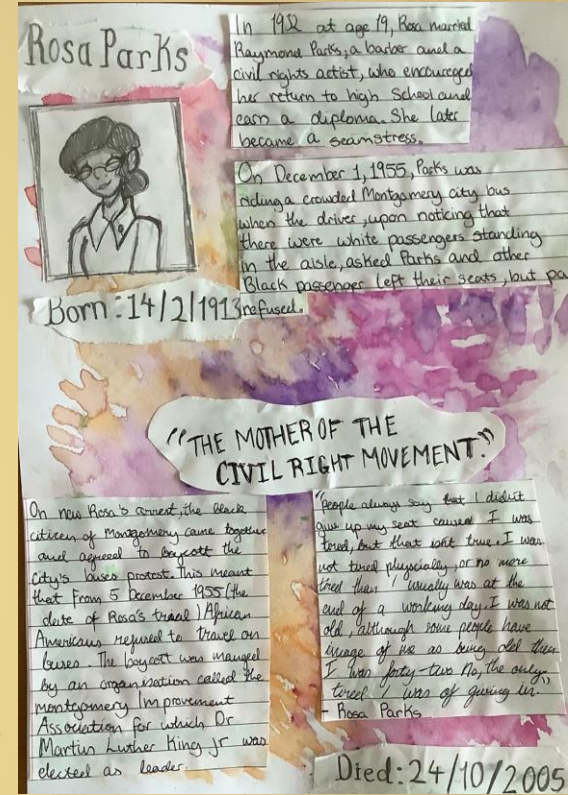 Rosa Parks
In 1932 at age 19, Rosa married
Raymond Parks, a barber and a
civil rights actist, who encoureged
her return to high School and
earn a diploma. She later
became a seamstress.
On December 1, 1955, Parks was
riding a crowded Montgomery city bus
when the driver, upon noticing that
there were white passengers standing
in the aisle, asked Parks and other
Black passenger left their seats, but pa
refused.
Born: 14/2/1913
"THE MOTHER OF THE
CIVIL RIGHT MOVEMENT."
On new Rosa's arrest, the black
citizen of Montgomery came together
and agreed to boycott the
city's buses protest. This meant
that From 5 December 1955 (the
date of Rosa's traial) African
Americans refused to travel on
buses. The boycott was manged
by an organisation called the
montgomery Improvement
Association for which Dr
Martin Luther King Jr was
elected as leader.
"people always say that I didn't
give up my seat cause I was
tired, but that isnt true. I was
not tired physcially, or no more
tired than usually was at the
end of a working day. I was not
old, although some people have
image of me as being old then
I was forty-two No, the only,
tired I was of giving in.
- Rosa Parks
Died: 24/10/2005